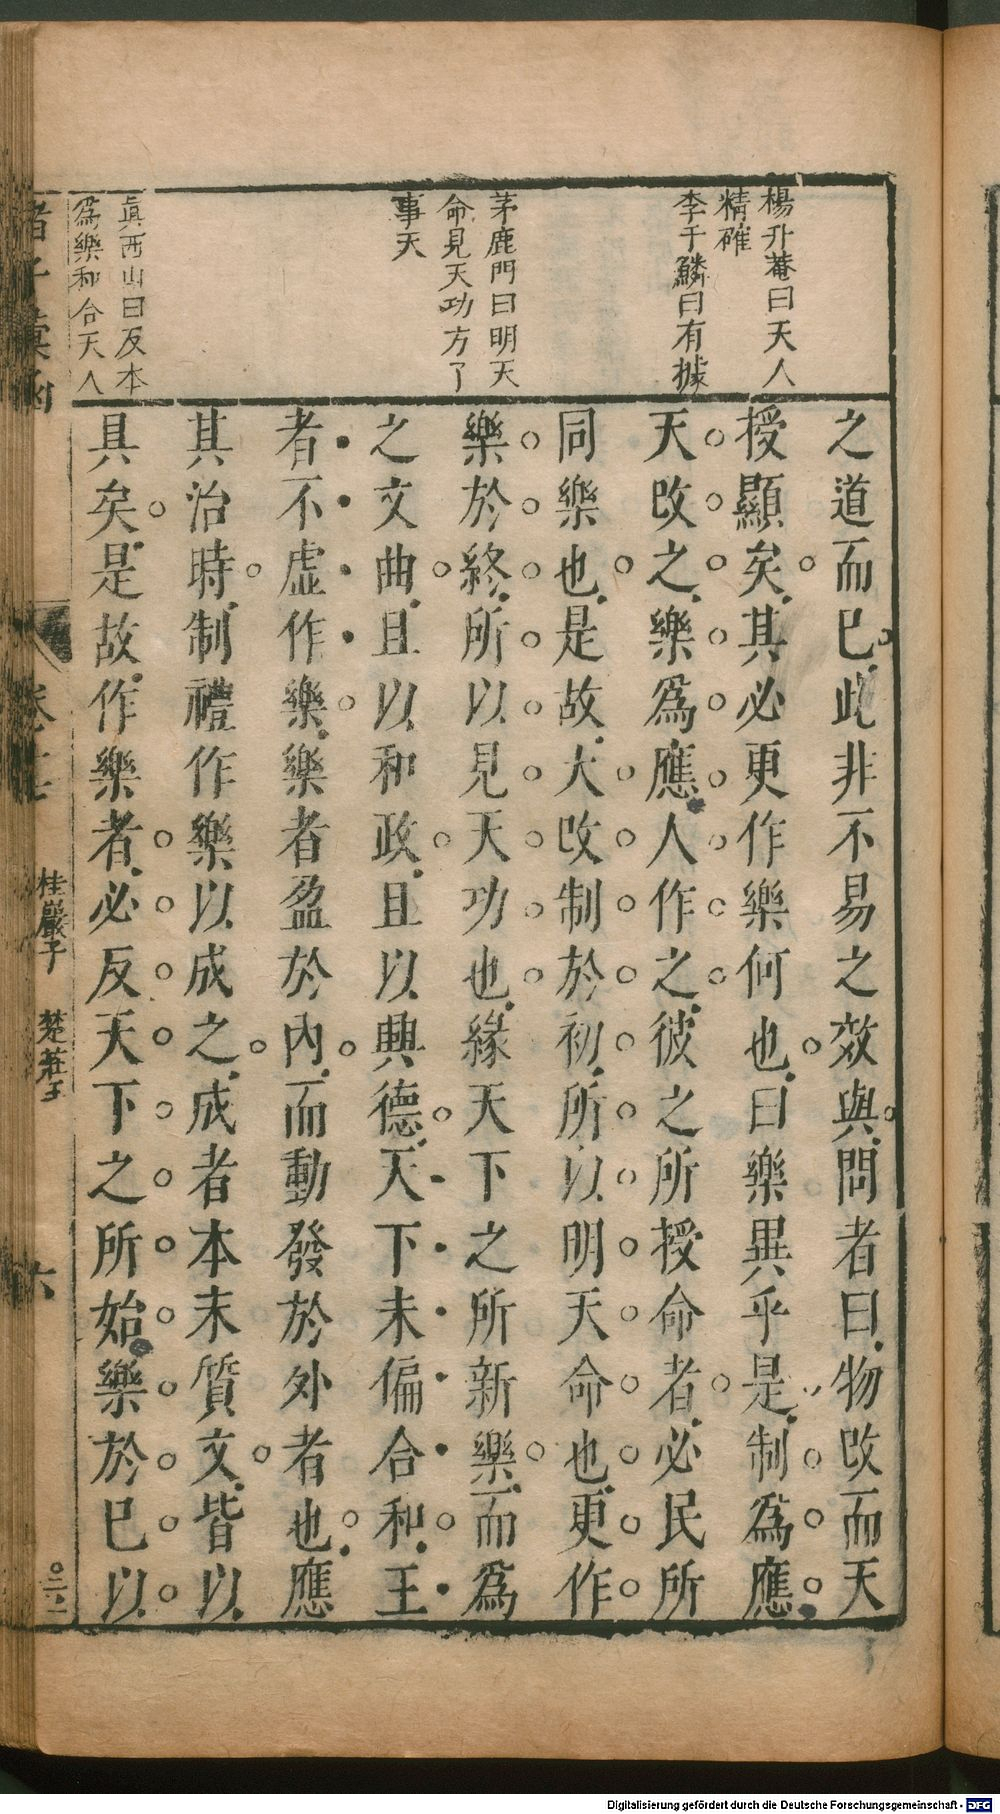 楊升菴曰天人
精確
李于鱗曰有據
茅鹿門曰明天
命見天功方了
事天
眞西山曰反本
爲樂和合天人
之道而已此非不易之效與問者曰物改而天
授顯矣其必更作樂何也曰樂異乎是制爲應
天改之樂爲應人作之彼之所授命者必民所
同樂也是故大改制於初所以明天命也更作
樂於終所以見天功也緣天下之所新樂而爲
之文曲且以和政且以興德天下未偏合和王
者不虛作樂樂者盈於內而動發於外者也應
其治時制禮作樂以成之成者本末質文皆以
具矣是故作樂者必反天下之所始樂於已以
諸子彙函
桂巖子 楚莊王
六
Digitalisierung gefördert durch die Deutsche Forschungsgemeinschaft - DFG